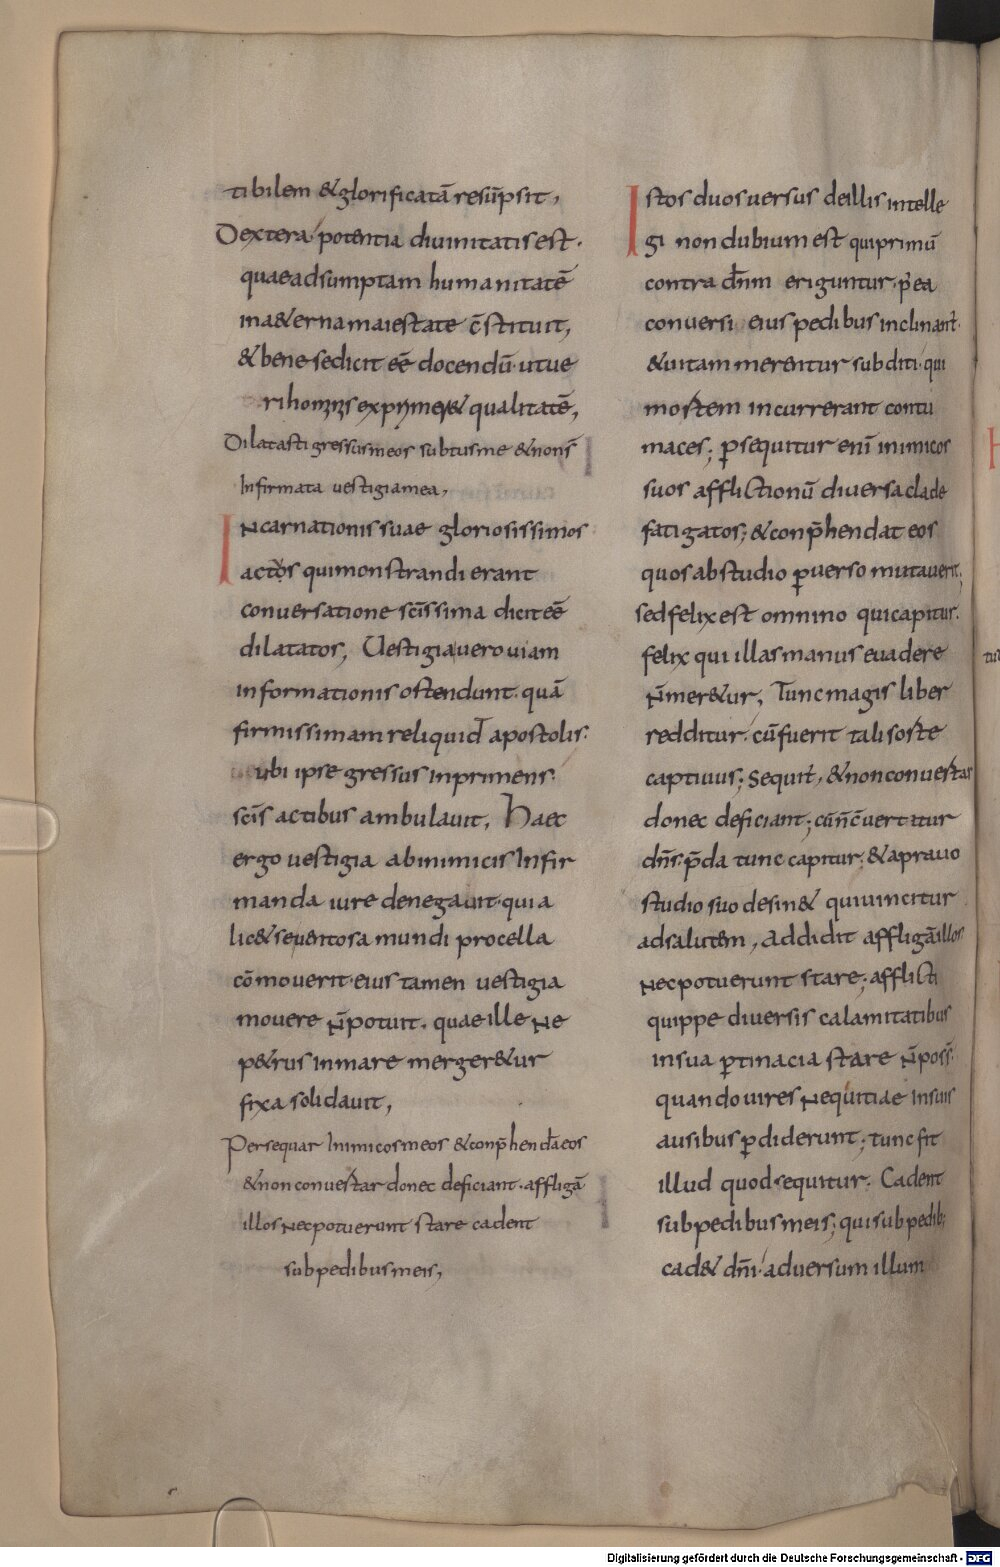 tibilem & glorificatā resūpsit,
Dextera potentia divinitatis est.
quae adsumptam humanitatē
in a&erna maiestate c̄stituit,
& bene se dicit eē docendū. ut ue
ri hominis exprimer& qualitatē,
Dilatasti gressus meos subtus me & non sī
infirmata vestigia mea,
Incarnationis suae gloriosissimos
actos qui monstrandi erant
conuersatione scīssima dicit eē
dilatatos, Uestigia uero uiam
informationis ostendunt. quā
firmissimam reliquid apostolis.
ubi ipse gressus inprimens
scīs actibus ambulauit, Haec
ergo uestigia ab inimicis infir
manda iure denegauit. quia
lic& seuentosa mundi procella
cōmouerit. eius tamen uestigia
mouere n̄ potuit. quae ille ne
p&rus in mare merger&ur
fixa solidauit,
Persequar inimicos meos & conp̄hendā eos
& non conuestar donec deficiant. affligā
illos nec potuerunt stare cadent
sub pedibus meis,
Istos duos uersus de illis intelle
gi non dubium est qui primū
contra dn̄m eriguntur. p̄ea
conuersi eius pedibus inclinant̄.
& uitam merentur subditi. qui
mortem incurrerant contu
maces; ꝑsequitur enī inimicos
suos afflictionū diuersa clade
fatigatos; & conp̄hendat eos
quos ab studio ꝑuerso mutauerit;
sed felix est omnino qui capitur.
felix qui illas manus euadere
n̄ mer&ur, Tunc magis liber
redditur. cū fuerit tali soste
captiuus; Sequit̄, & non conuestar
donec deficiant; cū n̄ c̄uertatur
dn̄s. p̄da tunc capitur. & a prauo
studio suo desin& qui uincitur
ad salutem, Addidit affligā illos
nec potuerunt stare; afflicti
quippe diuersis calamitatibus
in sua ꝑtinacia stare n̄ poss̄.
quando uires nequitiae in suis
ausibus ꝑdiderunt; tunc fit
illud quod sequitur. Cadent
sub pedibus meis; qui sub pedib;
cad& dn̄i. aduersum illum
Digitalisierung gefördert durch die Deutsche Forschungsgemeinschaft - DFG